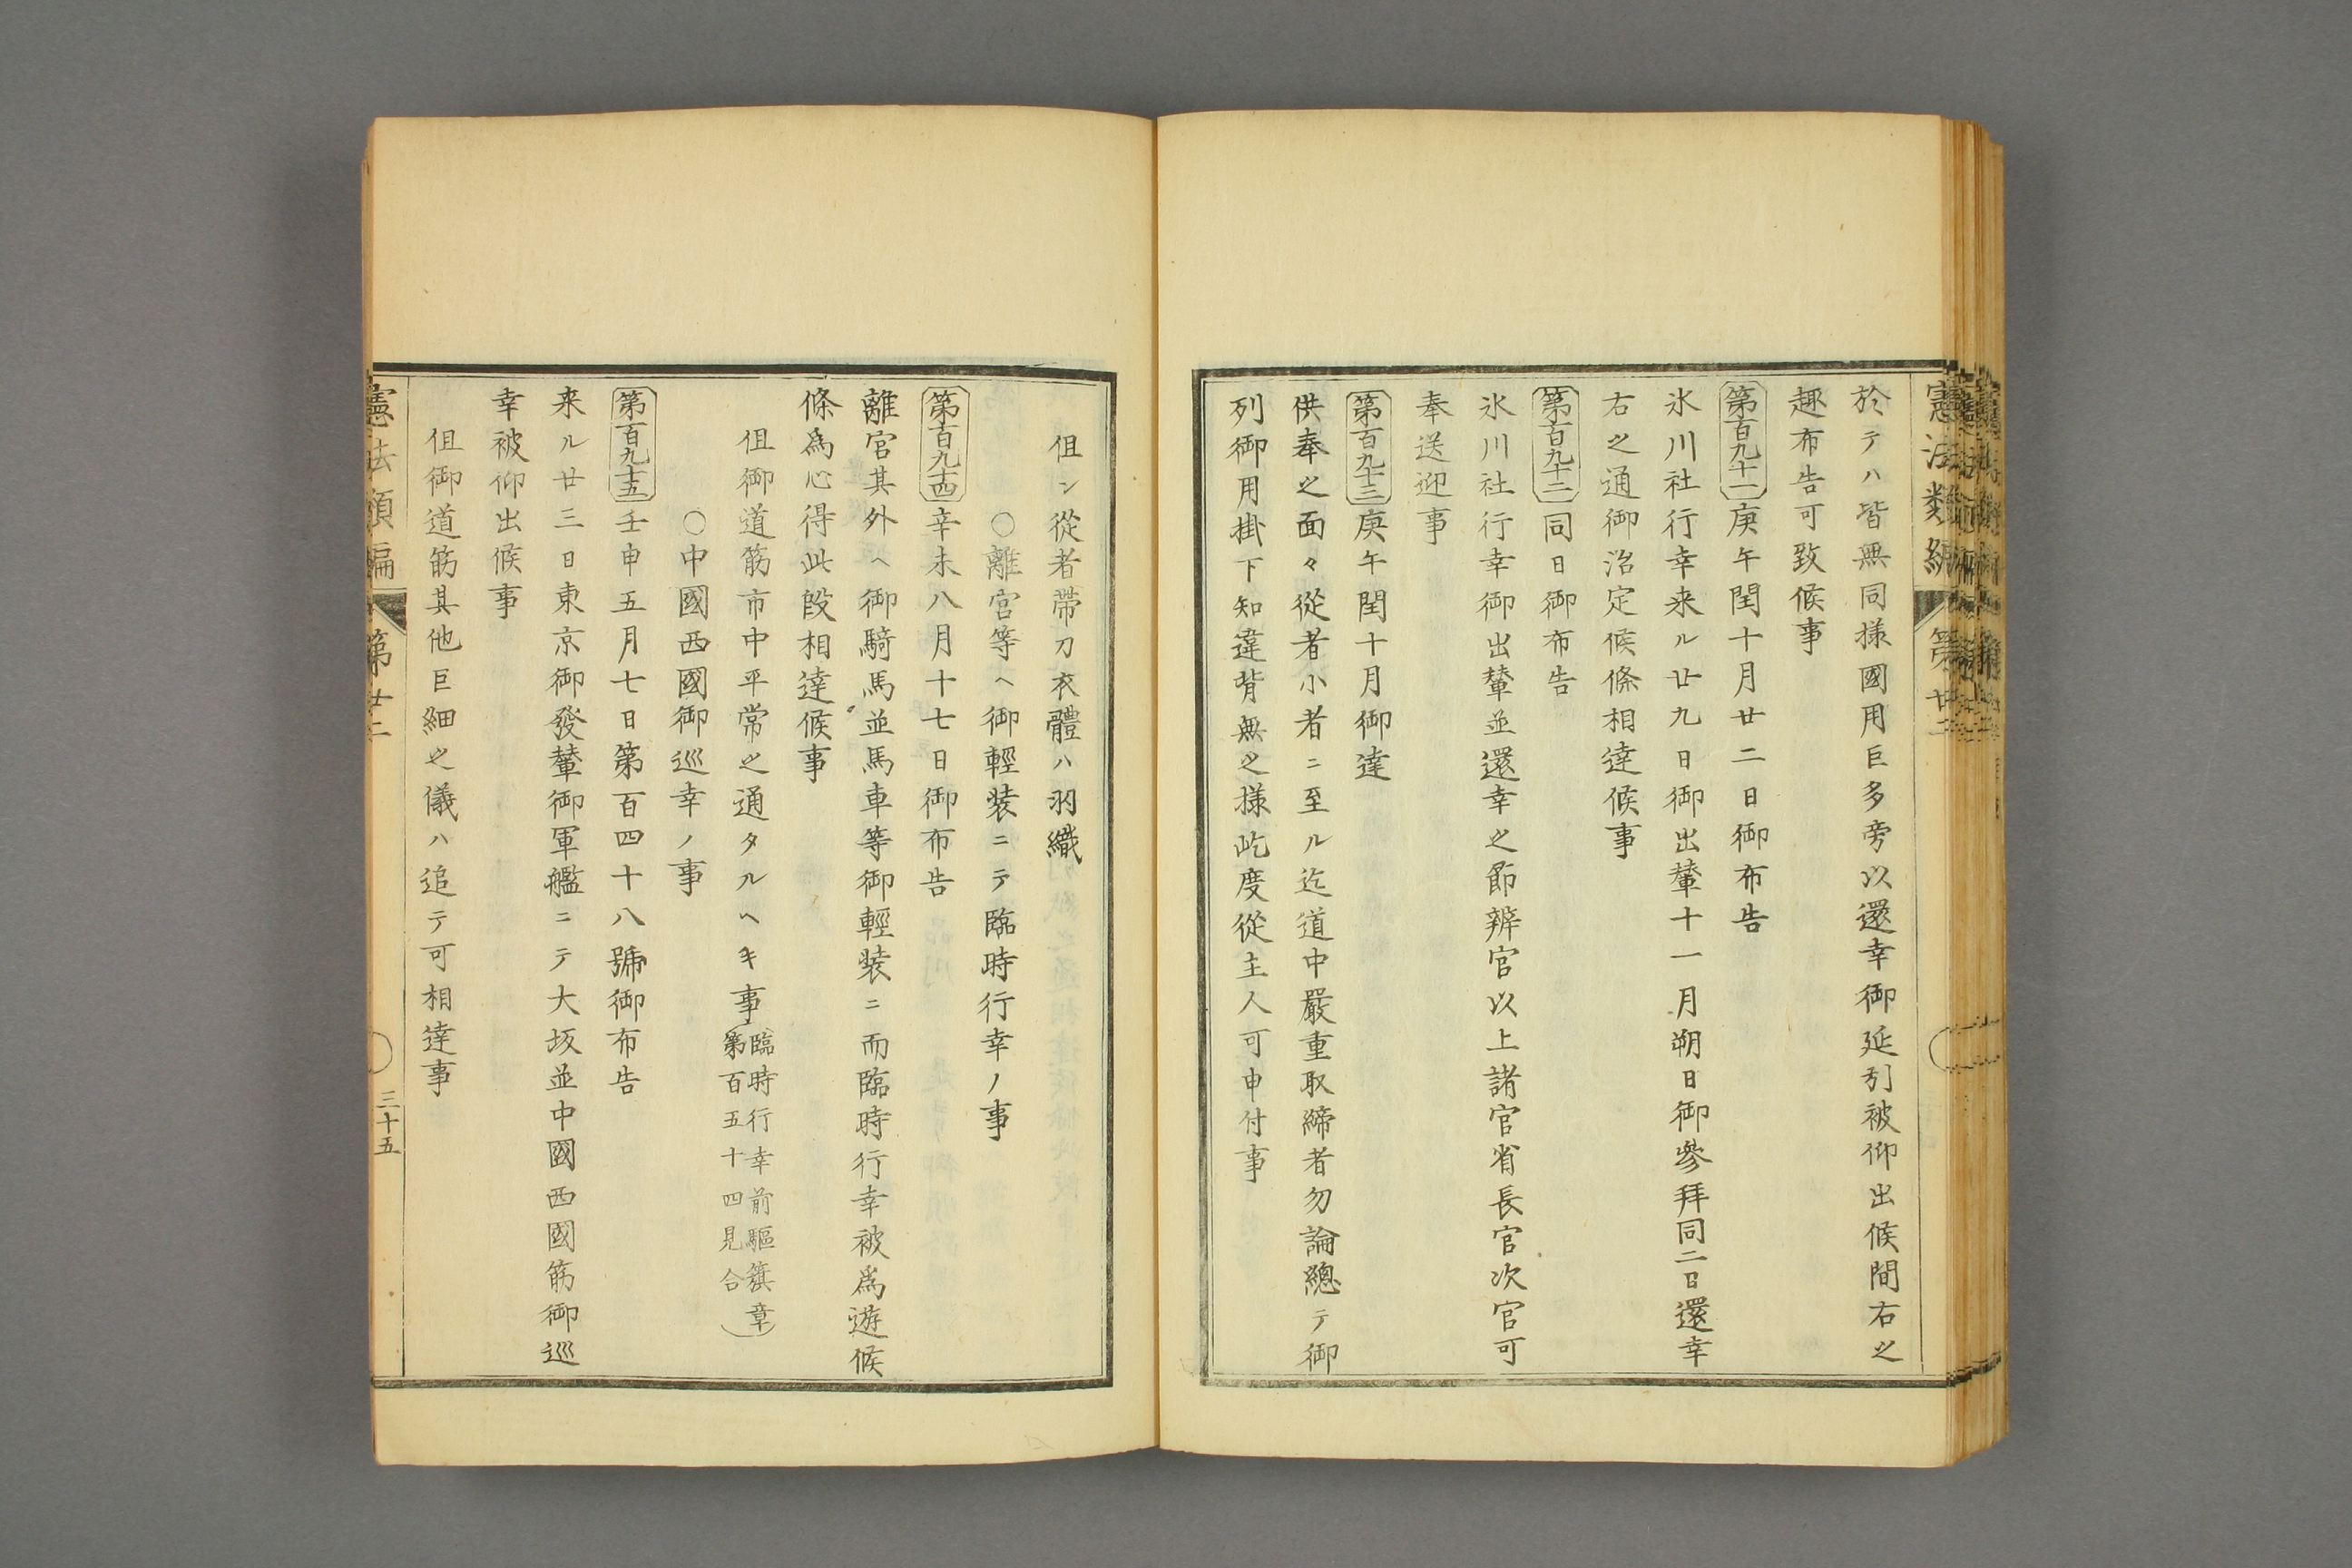 憲法類編 第廿二
於テハ皆無同樣國用巨多旁以還幸御延引被仰出候間右之
趣布告可致候事
第百九十一 庚午閏十月廿二日御布告
氷川社行幸来ル廿九日御出輦十一月朔日御參拜同二日還幸
右之通御治定候條相達候事
第百九十二 同日御布告
氷川社行幸御出輦並還幸之節辨官以上諸官省長官次官可
奉送迎事
第百九十三 庚午閏十月御達
供奉之面々從者小者ニ至ル迄道中嚴重取締者勿論總テ御
列御用掛下知違背無之様屹度從主人可申付事
但シ從者帶刀衣體ハ羽織
○離宮等ヘ御輕装ニテ臨時行幸ノ事
第百九十四 辛未八月十七日御布告
離宮其外ヘ御騎馬並馬車等御輕装ニ而臨時行幸被爲遊候
條爲心得此段相達候事
但御道筋市中平常之通タルヘキ事(臨時行幸前驅籏章
第百五十四見合)
○中國西國御巡幸ノ事
第百九十五 壬申五月七日第百四十八號御布告
来ル廿三日東京御發輦御軍艦ニテ大坂並中國西國筋御巡
幸被仰出候事
但御道筋其他巨細之儀ハ追テ可相達事
憲法類編 第廿二 三十五